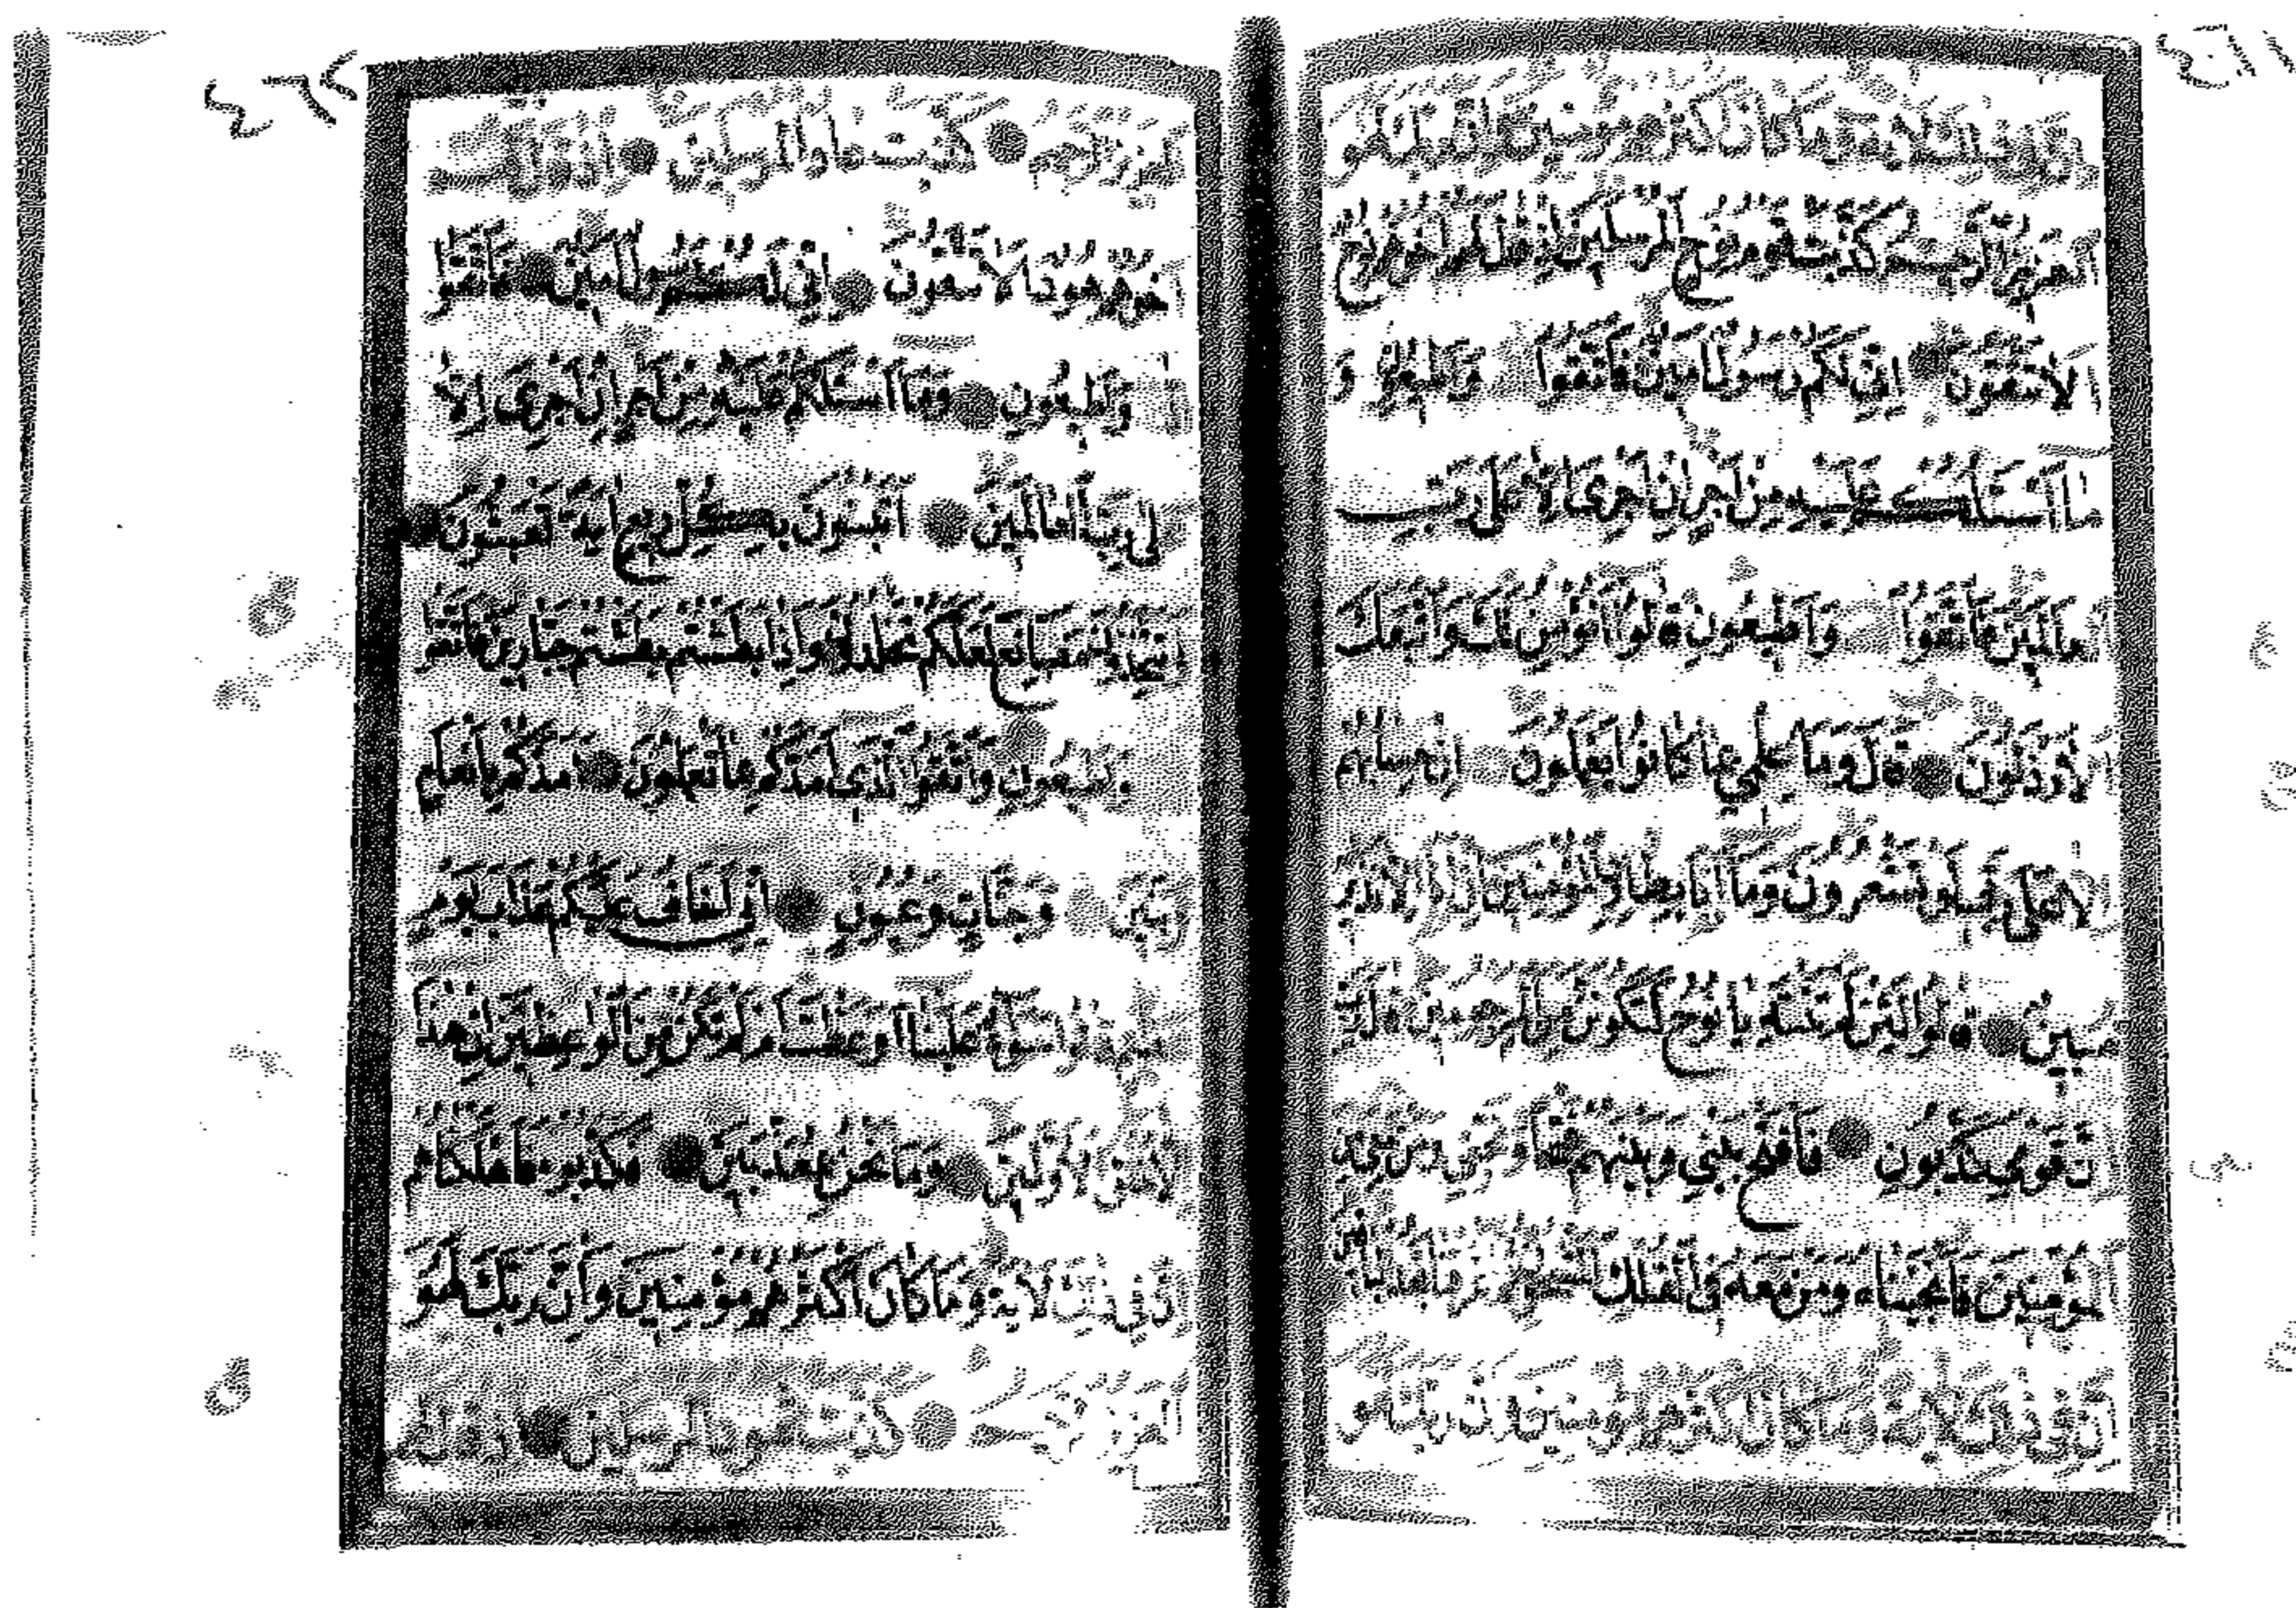 ٤٦١
العزيز الرحيم كذبت قوم نوح المرسلين اذ قال لهم اخوهم نوح
الا تتقون اني لكم رسول امين فاتقوا الله واطيعون و
ما اسئلكم عليه من اجر ان اجري الا على رب
العالمين فاتقوا الله واطيعون قالوا انؤمن لك واتبعك
الارذلون قال وما علمي بما كانوا يعملون ان حسابهم
الا على ربي لو تشعرون وما انا بطارد المؤمنين ان انا الا نذير
مبين قالوا لئن لم تنته يا نوح لتكونن من المرجومين قال رب
ان قومي كذبون فافتح بيني وبينهم فتحا ونجني ومن معي
المؤمنين فانجيناه ومن معه في الفلك المشحون ثم اغرقنا بعد الباقين
ان في ذلك لاية وما كان اكثرهم مؤمنين وان ربك لهو
٤٦٢
العزيز الرحيم كذبت عاد المرسلين اذ قال لهم
اخوهم هود الا تتقون اني لكم رسول امين فاتقوا
الله واطيعون وما اسئلكم عليه من اجر ان اجري الا
على رب العالمين اتبنون بكل ريع اية تعبثون
وتتخذون مصانع لعلكم تخلدون واذا بطشتم بطشتم جبارين فاتقوا
الله واطيعون واتقوا الذي امدكم بما تعلمون امدكم بانعام
وبنين وجنات وعيون اني اخاف عليكم عذاب يوم
عظيم قالوا سواء علينا اوعظت ام لم تكن من الواعظين ان هذا
الا خلق الاولين وما نحن بمعذبين فكذبوه فاهلكناهم
ان في ذلك لاية وما كان اكثرهم مؤمنين وان ربك لهو
العزيز الرحيم كذبت ثمود المرسلين اذ قال لهم